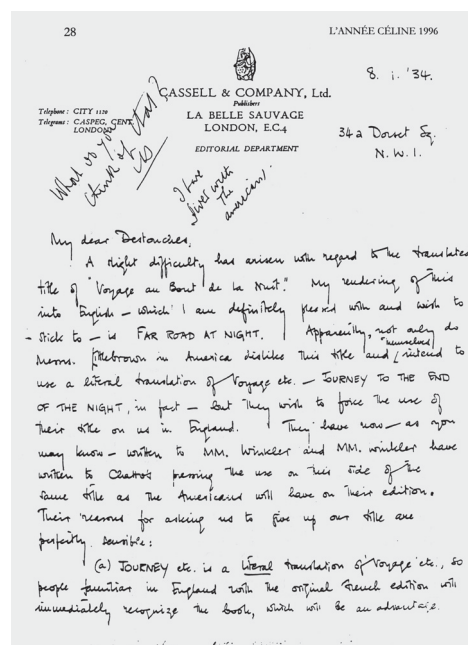 28
L'ANNÉE CÉLINE 1996
8. 1. '34.
CASSELL & COMPANY, Ltd.
Publishers
Telephone: CITY 1120
Telegrams: CASPEG, CENT, LONDON
LA BELLE SAUVAGE
LONDON, E.C.4
34a Dorset Sq.
N.W.1.
EDITORIAL DEPARTMENT
What do you
think of that?
I have
with
The
americans!
My dear Destouches,
A slight difficulty has arisen with regard to the translated
title of "Voyage au Bout de la Nuit." My rendering of this
into English – which I am definitely pleased with and wish to
stick to – is FAR ROAD AT NIGHT. Apparently, not only do
Messrs. Littlebrown in America dislike this title and themselves intend to
use a literal translation of Voyage etc. – JOURNEY TO THE END
OF THE NIGHT, in fact – but they wish to force the use of
their title on us in England. They have now – as you
may know – written to MM. Winkler and MM. Winkler have
written to Chattos pressing the use on this side of the
same title as the Americans will have on their edition.
Their reasons for asking us to give up our title are
perfectly sensible:
(a) JOURNEY etc. is a literal translation of Voyage etc., so
people familiar in England with the original French edition will
immediately recognize the book, which will be an advantage.